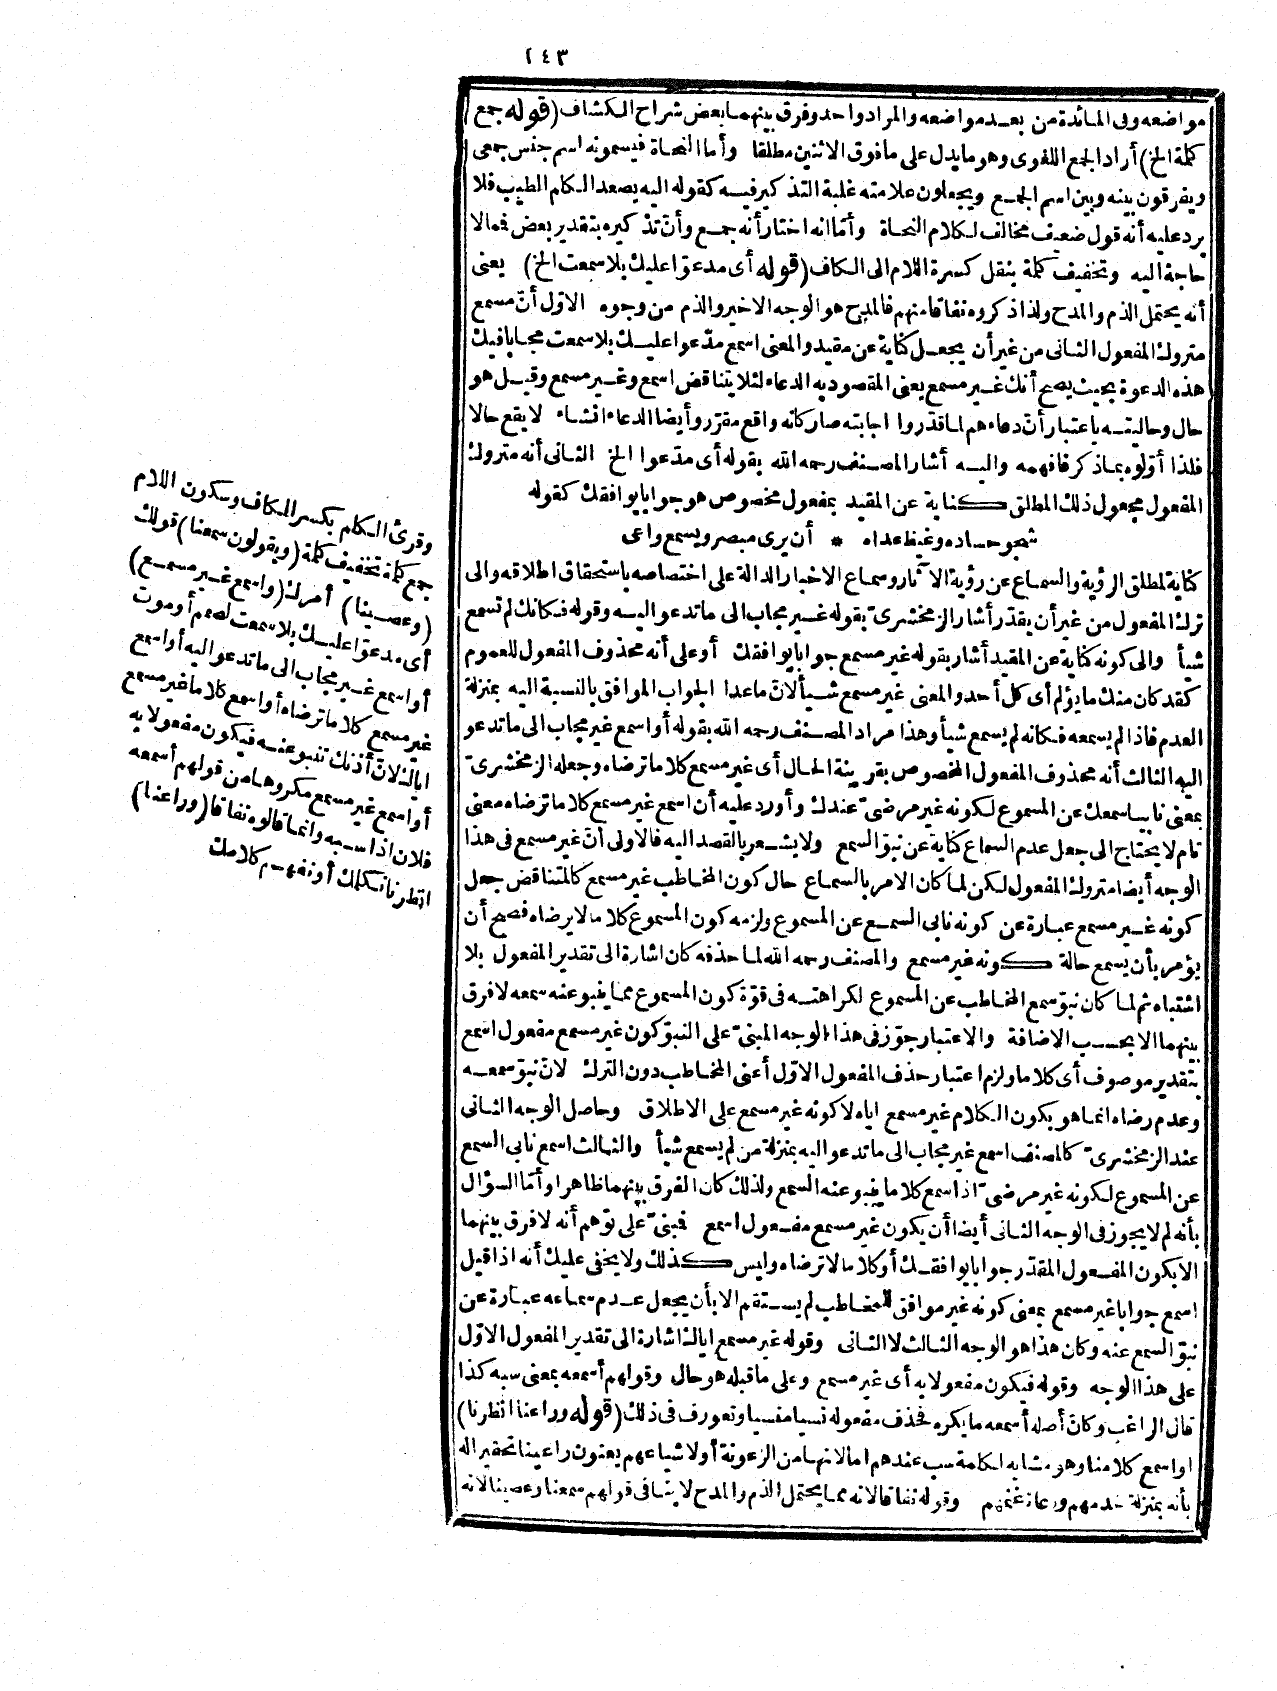 ١٤٣
مواضعه وفى المائدة من بعد مواضعه والمراد واحد وفرق بينهما بعض شراح الكشاف (قوله جمع
كلمة الخ) أراد الجمع اللغوى وهو ما يدل على ما فوق الاثنين مطلقا وأما النحاة فيسمونه اسم جنس جمعى
ويفرقون بينه وبين اسم الجمع ويجعلون علامته غلبة التذكير فيه كقوله اليه يصعد الكلم الطيب فلا
يرد عليه أنه قول ضعيف مخالف لكلام النحاة وأمّا انه اختار أنه جمع وأن تذكيره بتقدير بعض فمالا
حاجة اليه وتخفيف كلمة بنقل كسرة اللام الى الكاف (قوله أى مدعوّا عليك بلا سمعت الخ) يعنى
أنه يحتمل الذم والمدح ولذا ذكروه نفاقا منهم فالمدح هو الوجه الاخير والذم من وجوه الاوّل أنّ مسمع
متروك المفعول الثانى من غير أن يجعل كناية عن مقيد والمعنى اسمع مدعوّا عليك بلا سمعت مجابا فيك
هذه الدعوة بحيث يصح أنك غير مسمع يعنى المقصود به الدعاء لئلا يتناقض اسمع وغير مسمع وقيل هو
حال وحاليته باعتبار أنّ دعاءهم لما قدروا اجابته صار كأنه واقع مقرّر وأيضا الدعاء انشاء لا يقع حالا
فلذا أوّلوه بما ذكر فافهمه واليه أشار المصنف رحمه الله بقوله أى مدعوّا الخ الثانى أنه متروك
المفعول مجعول ذلك المطلق كناية عن المقيد بمفعول مخصوص هو جوابا يوافقك كقوله
شجو حساده وغيظ عداه * أن يرى مبصر ويسمع واعى
كناية لمطلق الرؤية والسماع عن رؤية الآثار وسماع الاخبار الدالة على اختصاصه باستحقاق اطلاقه والى
ترك المفعول من غير أن يقدّر أشار الزمخشرىّ بقوله غير مجاب الى ما تدعو اليه وقوله فكانك لم تسمع
شيأ والى كونه كناية عن المقيد أشار بقوله غير مسمع جوابا يوافقك أو على أنه محذوف المفعول للعموم
كقد كان منك ما يؤلم أى كل أحد والمعنى غير مسمع شيأ لانّ ماعدا الجواب الموافق بالنسبة اليه بمنزلة
العدم فاذا لم يسمعه فكانه لم يسمع شيأ وهذا مراد المصنف رحمه الله بقوله أو اسمع غير مجاب الى ما تدعو
اليه الثالث أنه محذوف المفعول المخصوص بقرينة الحال أى غير مسمع كلاما ترضاه وجعله الزمخشرىّ
بمعنى نابيا سمعك عن المسموع لكونه غير مرضىّ عندك وأورد عليه أن اسمع غير مسمع كلاما ترضاه معنى
تام لا يحتاج الى جعل عدم السماع كناية عن نبوّ السمع ولا يشعر بالقصد اليه فالاولى أنّ غير مسمع فى هذا
الوجه أيضا متروك المفعول لكن لما كان الامر بالسماع حال كون المخاطب غير مسمع كالمتناقض جعل
كونه غير مسمع عبارة عن كونه نابى السمع عن المسموع ولزمه كون المسموع كلاما لا يرضاه فصح أن
يؤمر بأن يسمع حالة كونه غير مسمع والمصنف رحمه الله لما حذفه كان اشارة الى تقدير المفعول بلا
اشتباه ثم لما كان نبوّ سمع المخاطب عن المسموع لكراهته فى قوّة كون المسموع مما ينبو عنه سمعه لا فرق
بينهما الا بحسب الاضافة والاعتبار جوّز فى هذا الوجه المبنىّ على النبوّ كون غير مسمع مفعول اسمع
بتقدير موصوف أى كلاما ولزم اعتبار حذف المفعول الاوّل أعنى المخاطب دون الترك لانّ نبوّ سمعه
وعدم رضاه انما هو بكون الكلام غير مسمع اياه لا كونه غير مسمع على الاطلاق وحاصل الوجه الثانى
عند الزمخشرىّ كالمصنف اسمع غير مجاب الى ما تدعو اليه بمنزلة من لم يسمع شيأ والثالث اسمع نابى السمع
عن المسموع لكونه غير مرضىّ اذا سمع كلاما ينبو عنه السمع ولذلك كان الفرق بينهما ظاهرا وأمّا السؤال
بأنه لم لا يجوز فى الوجه الثانى أيضا أن يكون غير مسمع مفعول اسمع فبنىّ على توّهم أنه لا فرق بينهما
الا بكون المفعول المقدّر جوابا يوافقك أو كلاما لا ترضاه وليس كذلك ولا يخفى عليك أنه اذا قيل
اسمع جوابا غير مسمع بمعنى كونه غير موافق للمخاطب لم يستقم الا بأن يجعل عدم سماعه عبارة عن
نبوّ السمع عنه وكان هذا هو الوجه الثالث لا الثانى وقوله غير مسمع اياك اشارة الى تقدير المفعول الاوّل
على هذا الوجه وقوله فيكون مفعولا به أى غير مسمع وعلى ما قبله هو حال وقولهم أسمعه بمعنى سبه كذا
قال الراغب وكانّ أصله أسمعه ما يكره فحذف مفعوله نسيا منسيا وتعورف فى ذلك (قوله وراعنا انظرنا)
او اسمع كلامنا وهو مشابه لكلمة سب عندهم امالانها من الرعونة أولاشباعهم يعنون راعينا تحقير اله
بأنه بمنزلة خدمهم ورعاة غنمهم وقوله نفاقا لانه مما يحتمل الذم والمدح لا ينافى قولهم سمعنا وعصينا لانه
وقرئ الكلم بكسر الكاف وسكون اللام
جمع كلمة تخفيف كلمة (ويقولون سمعنا) قولك
(وعصينا) أمرك (واسمع غير مسمع)
أى مدعوّا عليك بلا سمعت لصمم أو موت
أو اسمع غير مجاب الى ما تدعو اليه أو اسمع
غير مسمع كلاما ترضاه أو اسمع كلاما غير مسمع
اياك لانّ أذنك تنبو عنه فيكون مفعولا به
أو اسمع غير مسمع مكروها من قولهم أسمعه
فلان اذا سبه وانما قالوه نفاقا (وراعنا)
انظرنا نكلمك أو نفهم كلامك